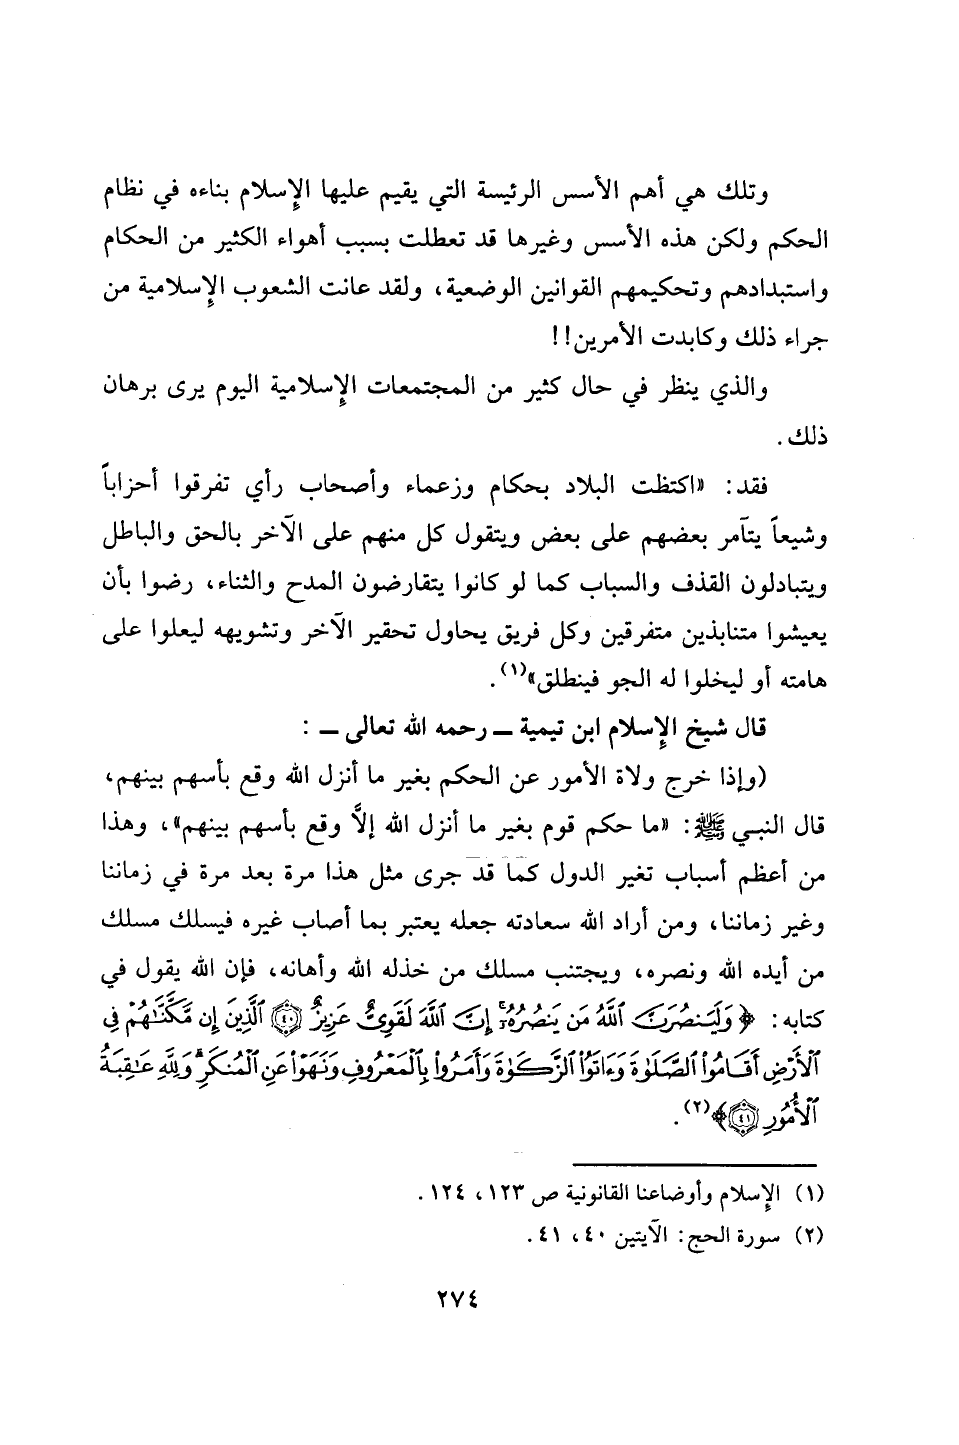 وتلك هي أهم الأسس الرئيسة التي يقيم عليها الإسلام بناءه في نظام
الحكم ولكن هذه الأسس وغيرها قد تعطلت بسبب أهواء الكثير من الحكام
واستبدادهم وتحكيمهم القوانين الوضعية، ولقد عانت الشعوب الإسلامية من
جراء ذلك وكابدت الأمرين!!
والذي ينظر في حال كثير من المجتمعات الإسلامية اليوم يرى برهان
ذلك.
فقد: «اكتظت البلاد بحكام وزعماء وأصحاب رأي تفرقوا أحزاباً
وشيعاً يتآمر بعضهم على بعض ويتقول كل منهم على الآخر بالحق والباطل
ويتبادلون القذف والسباب كما لو كانوا يتقارضون المدح والثناء، رضوا بأن
يعيشوا متنابذين متفرقين وكل فريق يحاول تحقير الآخر وتشويهه ليعلوا على
هامته أو ليخلوا له الجو فينطلق»(١).
قال شيخ الإسلام ابن تيمية ــ رحمه الله تعالى ــ :
(وإذا خرج ولاة الأمور عن الحكم بغير ما أنزل الله وقع بأسهم بينهم،
قال النبي ﷺ: «ما حكم قوم بغير ما أنزل الله إلاَّ وقع بأسهم بينهم»، وهذا
من أعظم أسباب تغير الدول كما قد جرى مثل هذا مرة بعد مرة في زماننا
وغير زماننا، ومن أراد الله سعادته جعله يعتبر بما أصاب غيره فيسلك مسلك
من أيده الله ونصره، ويجتنب مسلك من خذله الله وأهانه، فإن الله يقول في
كتابه: ﴿ وَلَيَنصُرَنَّ ٱللَّهُ مَن يَنصُرُهُۥٓ إِنَّ ٱللَّهَ لَقَوِىٌّ عَزِيزٌ ۝٤٠ ٱلَّذِينَ إِن مَّكَّنَّٰهُمْ فِى
ٱلْأَرْضِ أَقَامُوا۟ ٱلصَّلَوٰةَ وَءَاتَوُا۟ ٱلزَّكَوٰةَ وَأَمَرُوا۟ بِٱلْمَعْرُوفِ وَنَهَوْا۟ عَنِ ٱلْمُنكَرِ ۗ وَلِلَّهِ عَٰقِبَةُ
ٱلْأُمُورِ ۝٤١ ﴾(٢).
(١) الإسلام وأوضاعنا القانونية ص ١٢٣، ١٢٤.
(٢) سورة الحج: الآيتين ٤٠، ٤١.
٢٧٤